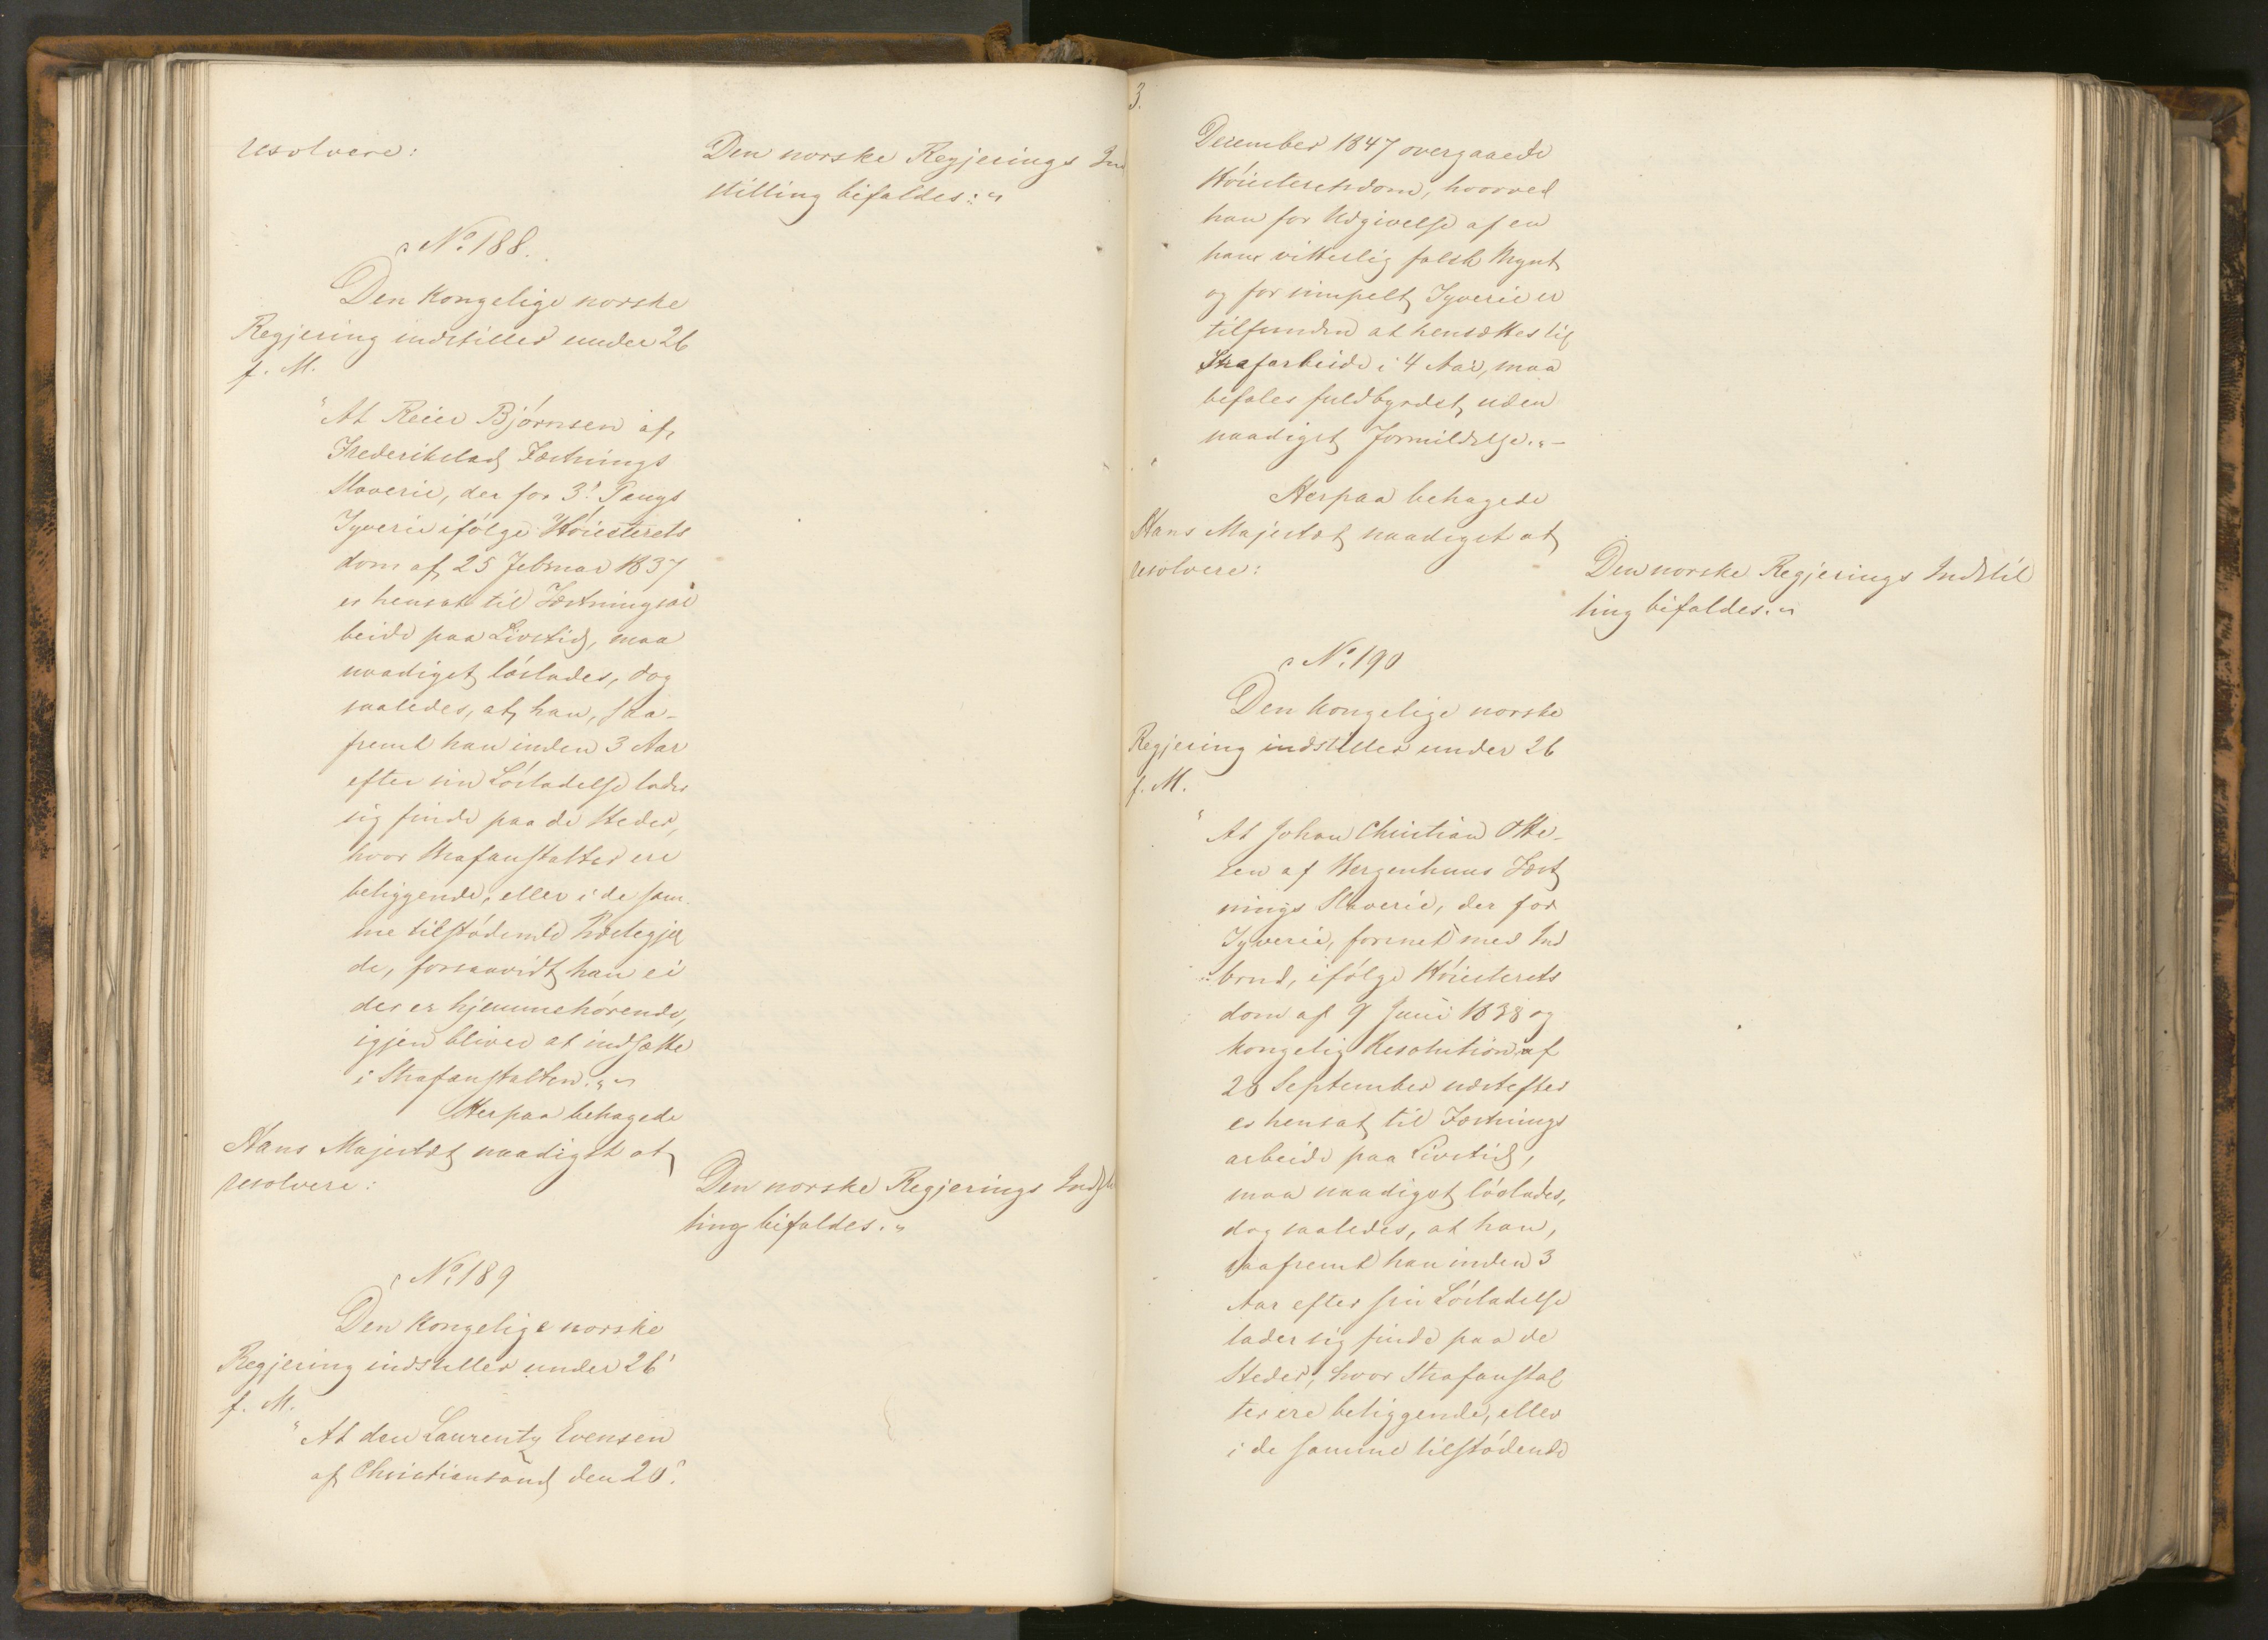 resolvere:
Den norske Regjerings In
stilling bifaldes:"
No. 188.
Den kongelige norske
Regjering indstiller under 26
f. M.
"At Reier Bjórnsen af
Frederikstad Fæstnings
Slaverie, der for 3! Gangs
Tyverie ifólge Hóiesterets
dom af 25 Februar 1837
er hensat til Fæstningsar
beide paa Livstid, maa
naadigst lóslades, dog
saaledes, at han, saa-
fremt han inden 3 Aar
efter sin Lósladelse lader
sig finde paa de Steder,
hvor Strafanstalter ere
beliggende, eller i de sam-
me tilstódende Præstegjel
de, forsaavidt han ei
der er hjemmehórende,
igjen bliver at indsætte
i Strafanstalten."
Herpaa behagede
Hans Majestæt naadigst at
resolvere:
Den norske Regjerings Indst
ling bifaldes."
No. 189
Den kongelige norske
Regjering indstiller under 26'
f. M.
"At den Laurentz Evensen
af Christiansand den 20!
3.
December 1847 overgaaede
Hóiesteretsdom, hvorved
han for Udgivelse af en
ham vitterlig falsk Mynt
og for simpelt Tyverie er
tilfunden at hensættes til
Strafarbeide i 4 Aar, maa
befales fuldbyrdet uden
naadigst Formildelse."-
Herpaa behagede
Hans Majestæt naadigst at
resolvere:
Den norske Regjerings Indstil
ling bifaldes."
No. 190
Den kongelige norske
Regjering indstiller under 26
f. M.
"At Johan Christian Otte-
sen af Bergenhuus Fæst
nings Slaverie, der for
Tyverie, forenet med Ind
brud, ifólge Hóiesterets
dom af 9 Juni 1838 og
kongelig Resolution af
28 September næstefter
er hensat til Fæstnings
arbeide paa Livstid,
maa naadigst lóslades,
dog saaledes, at han,
saafremt han inden 3
Aar efter sin Lósladelse
lader sig finde paa de
Steder, hvor Strafanstal
ter ere beliggende, eller
i de samme tilstódende